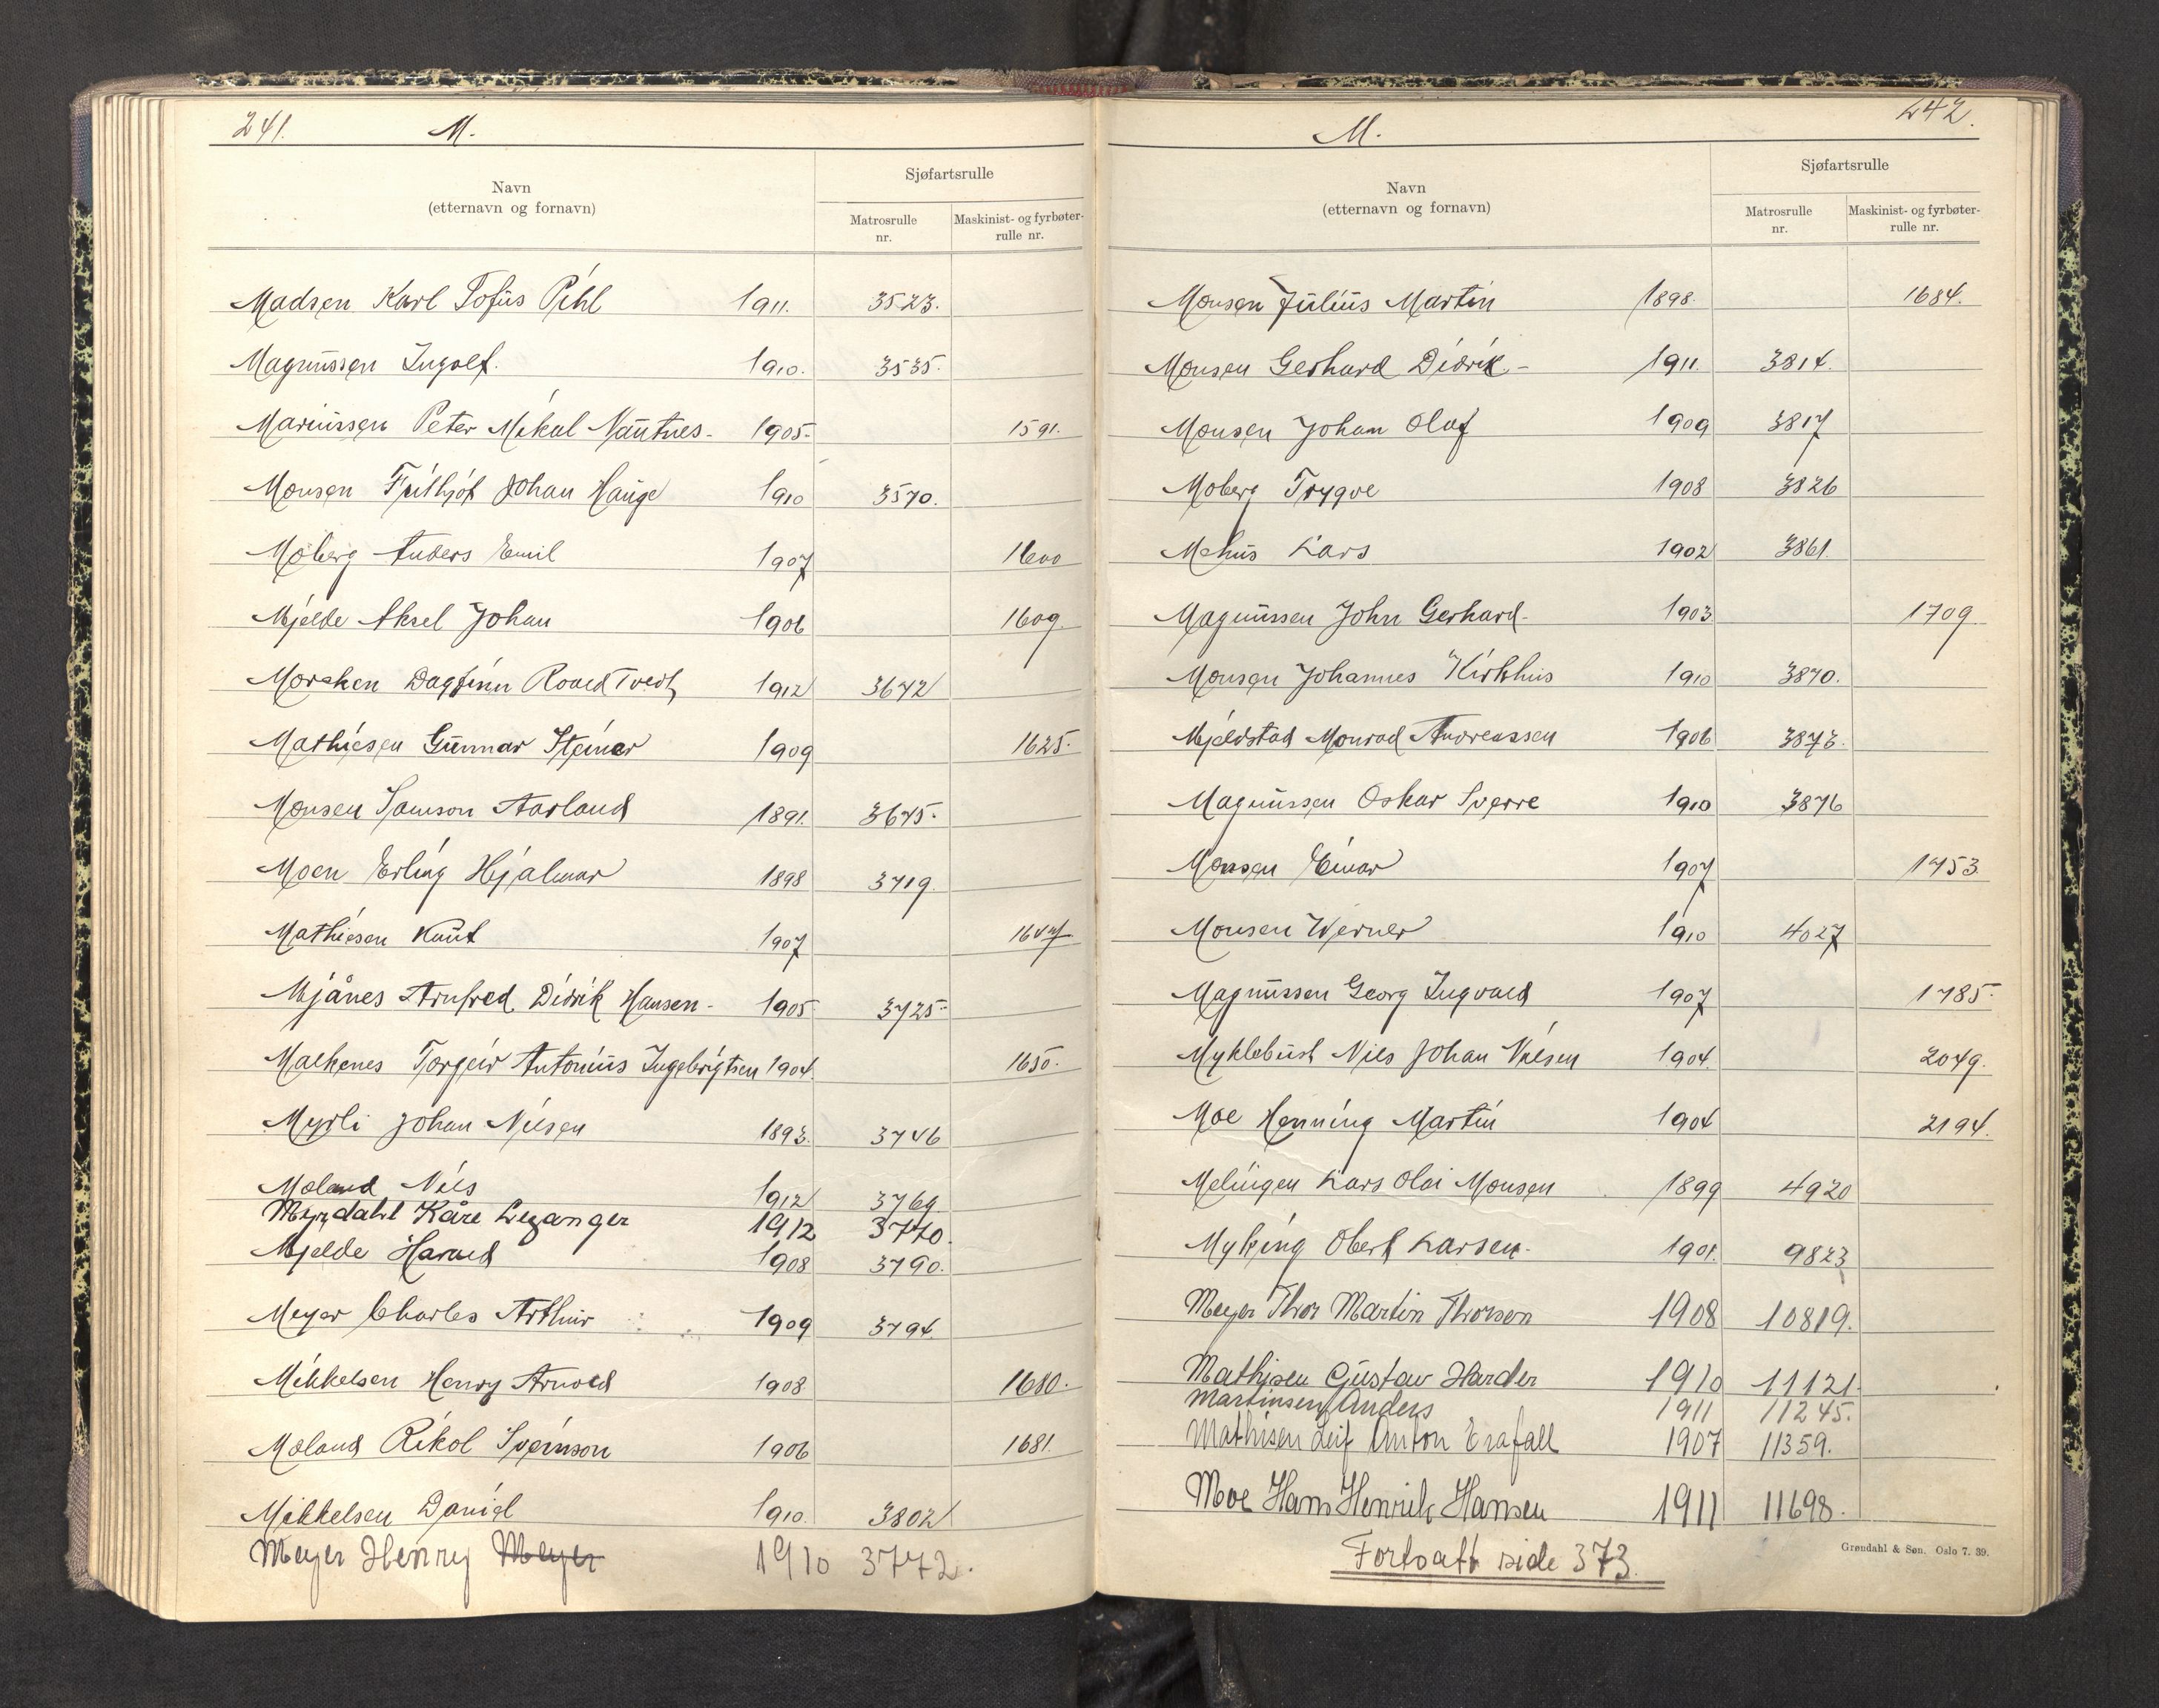 241. M.
Navn
(etternavn og fornavn)
Sjøfartsrulle
Matrosrulle
nr.
Maskinist- og fyrbøter-
rulle nr.
Madsen Karl Tofus Pihl 1911. 3523.
Magnussen Ingolf. 1910. 3535.
Mariussen Peter Mikal Nautnes- 1905- 1591.
Monsen Frithjof Johan Hauge 1910 3570.
Moberg Anders Emil 1907 1600
Mjelde Aksel Johan 1906 1609.
Morsken Dagfinn Roald Tvedt 1912 3642
Mathiesen Gunnar Steinar 1909 1625.
Monsen Samson Aarland 1891. 3645.
Moen Erling Hjalmar 1898 3719.
Mathiesen Knut 1907 1647
Mjånes Arnfred Didrik Hansen- 1905 3725-
Malkenes Torgeir Antonius Ingebrigtsen 1904. 1650.
Myrli Johan Nilsen 1893. 3746
Moland Nils 1912 3769.
Myrdahl Kåre Leganger 1912 3770.
Mjelde Harald 1908 3790.
Meyer Charles Arthur 1909 3794.
Mikkelsen Henry Arnold 1908 1680.
Moland Rikol Sveinson 1906 1681.
Mikkelsen Daniel 1910. 3802
Meyer Henry Meyer 1910 3772.
M. 242.
Navn
(etternavn og fornavn)
Sjøfartsrulle
Matrosrulle
nr.
Maskinist- og fyrbøter-
rulle nr.
Monsen Julius Martin 1898. 1684.
Monsen Gerhard Didrik- 1911. 3814.
Monsen Johan Olaf 1909 3817
Moberg Trygve 1908 3826
Mehus Lars 1902 3861.
Magnussen John Gerhard- 1903 1709.
Monsen Johannes Kirkhus 1910 3870.
Mjeldstad Monrad Andreassen 1906 3873.
Magnussen Oskar Sverre 1910 3876
Monsen Einar 1907 1753.
Monsen Werner 1910 4027
Magnussen Georg Ingvald 1907 1785.
Myklebust Nils Johan Nilsen 1904. 2049.
Moe Henning Martin 1904 2194.
Melingen Lars Olai Monsen 1899 4920
Myking Obert Larsen- 1901. 9823
Meyer Thor Martin Thorsen 1908 10819.
Mathisen Gustav Harder 1910 11121.
Martinsen Anders 1911 11245.
Mathisen Leif Anton Erafall 1907 11359.
Moe Hans Henrik Hansen 1911 11698.
Fortsatt side 373.
Grøndahl & Søn, Oslo 7. 39.